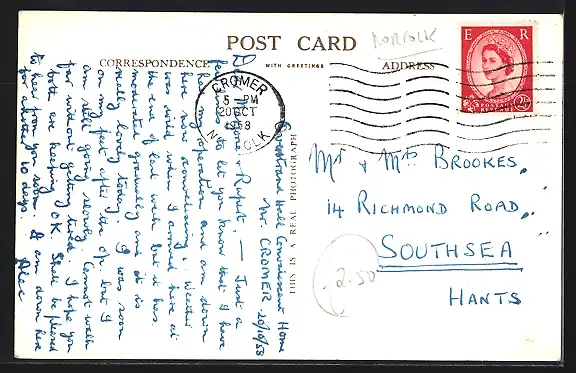 POST CARD
NORFOLK
CORRESPONDENCE
WITH GREETINGS
ADDRESS
E R
POSTAGE
REVENUE
2½D
CROMER
5 - PM
20 OCT
1958
NORFOLK
THIS IS A REAL PHOTOGRAPH
Overstrand Hall Convalescent Home
Nr. CROMER. 20/10/58
& Rupert, — Just a
few lines to let you know that I have
had my operation and am down
here now convalescing. Weather
was wild when I arrived here at
the end of last week but it has
moderated gradually and it is
really lovely today. I was soon
on my feet after the op. but I
am still going slowly. Cannot walk
far without getting tired. I hope you
both are keeping O.K. Shall be pleased
to hear from you soon. I am down here
for another 10 days.
Alec
Mr & Mrs BROOKES,
14 RICHMOND ROAD,
SOUTHSEA
HANTS
2.50